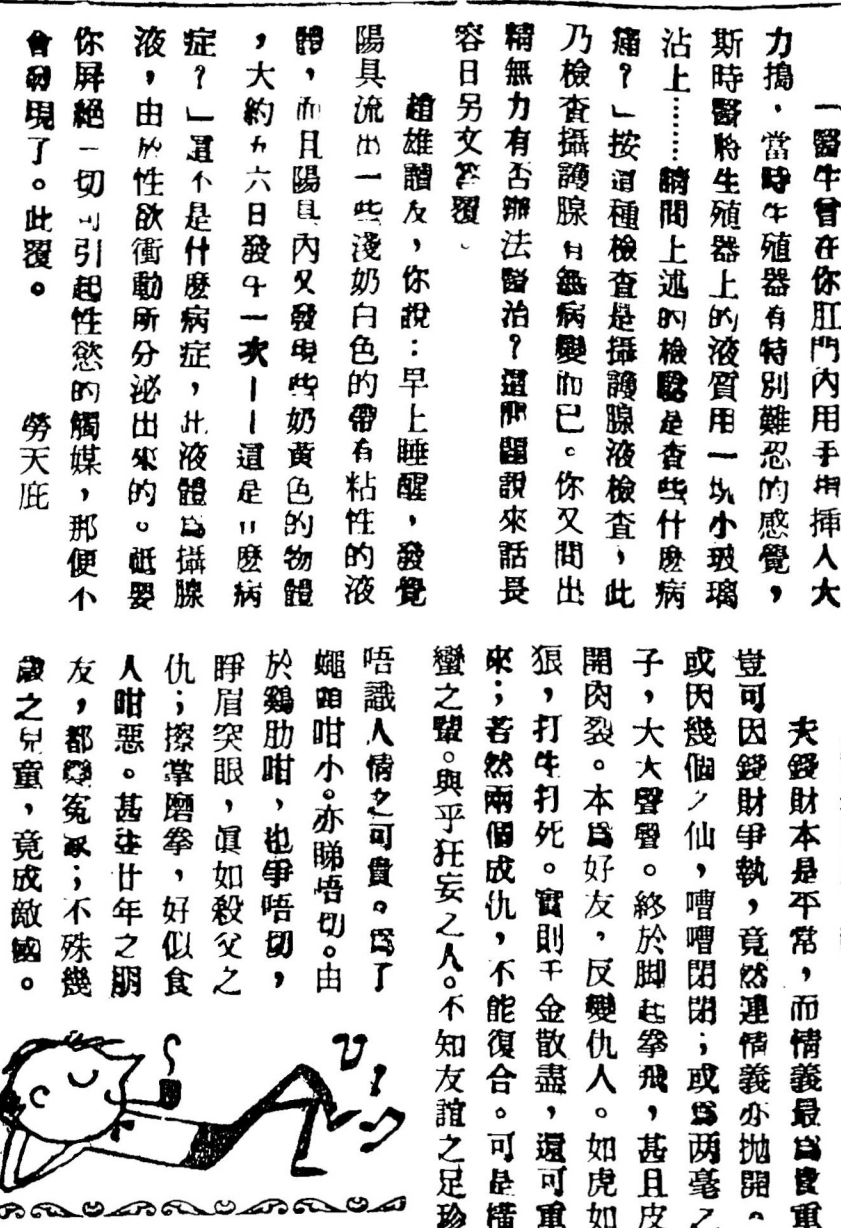 一醫生曾在你肛門內用手由插入大
力搗，當時生殖器有特別難忍的感覺，
斯時醫將生殖器上的液質用一塊小玻璃
沾上……請問上述的檢驗是查些什麼病
痛？」按這種檢查是攝護腺液檢查，此
乃檢查攝護腺有無病變而已。你又問出
精無力有否辦法醫治？這問題說來話長
容日另文答覆。
趙雄讀友，你說：早上睡醒，發覺
陽具流出一些淺奶白色的帶有粘性的液
體，而且陽具內又發現些奶黃色的物體
，大約五六日發生一次——這是什麼病
症？」這不是什麼病症，此液體為攝腺
液，由於性欲衝動所分泌出來的。祇要
你屏絕一切可引起性慾的觸媒，那便不
會發現了。此覆。
勞天庇
夫錢財本是平常，而情義最為貴重
豈可因錢財爭執，竟然連情義亦拋開。
或因幾個之仙，嘈嘈閉閉；或為两毫之
子，大大聲聲。終於脚起拳飛，甚且皮
開肉裂。本為好友，反變仇人。如虎如
狼，打生打死。實則千金散盡，還可重
來；若然兩個成仇，不能復合。可是橫
蠻之輩。與乎狂妄之人。不知友誼之足珍
唔識人情之可貴。為了
蠅頭咁小。亦睇唔切。由
於鷄肋咁，也爭唔切，
睜眉突眼，眞如殺父之
仇；擦掌磨拳，好似食
人咁惡。甚至廿年之朋
友，都變冤家；不殊幾
歲之兒童，竟成敵國。